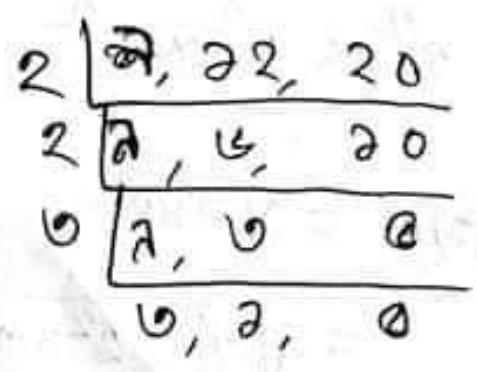 ২ ৯, ১২, ২০
২ ৯, ৬, ১০
৩ ৯, ৩ ৫
৩, ১, ৫